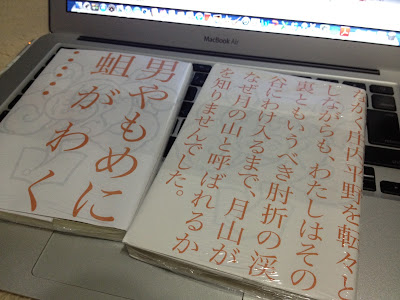 MacBook Air
男やもめに
蛆がわく
ながく庄内平野を転々と
しながらも、わたしはその
裏ともいうべき肘折の渓
谷にわけ入るまで、月山が
なぜ月の山と呼ばれるか
を知りませんでした。